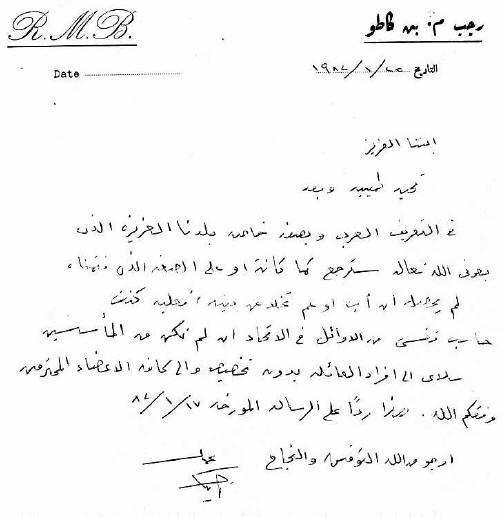 R. M. B.
رجب م. بن كاطو
Date
التاريخ ١٩٨٢/١/٢٥
ابننا العزيز
تحية طيبة وبعد
في التعريف العربي وبصفة خاصة بلدنا العزيزة الذي
بعون الله تعالى سترجع كما كانت او على الصفة الذي نتمناه
لم ان أب او عم عن كنت
حاسب نفسي من الاوائل في الاتحاد ان لم نكن من المأسسين
سلامي الى افراد العائلة بدون تخصيص والى كافة الاعضاء المحترمين
وفقكم الله. هذا ردًا على الرسالة المورخة ٨٢/١/١٧
ارجو من الله التوفيق والنجاح